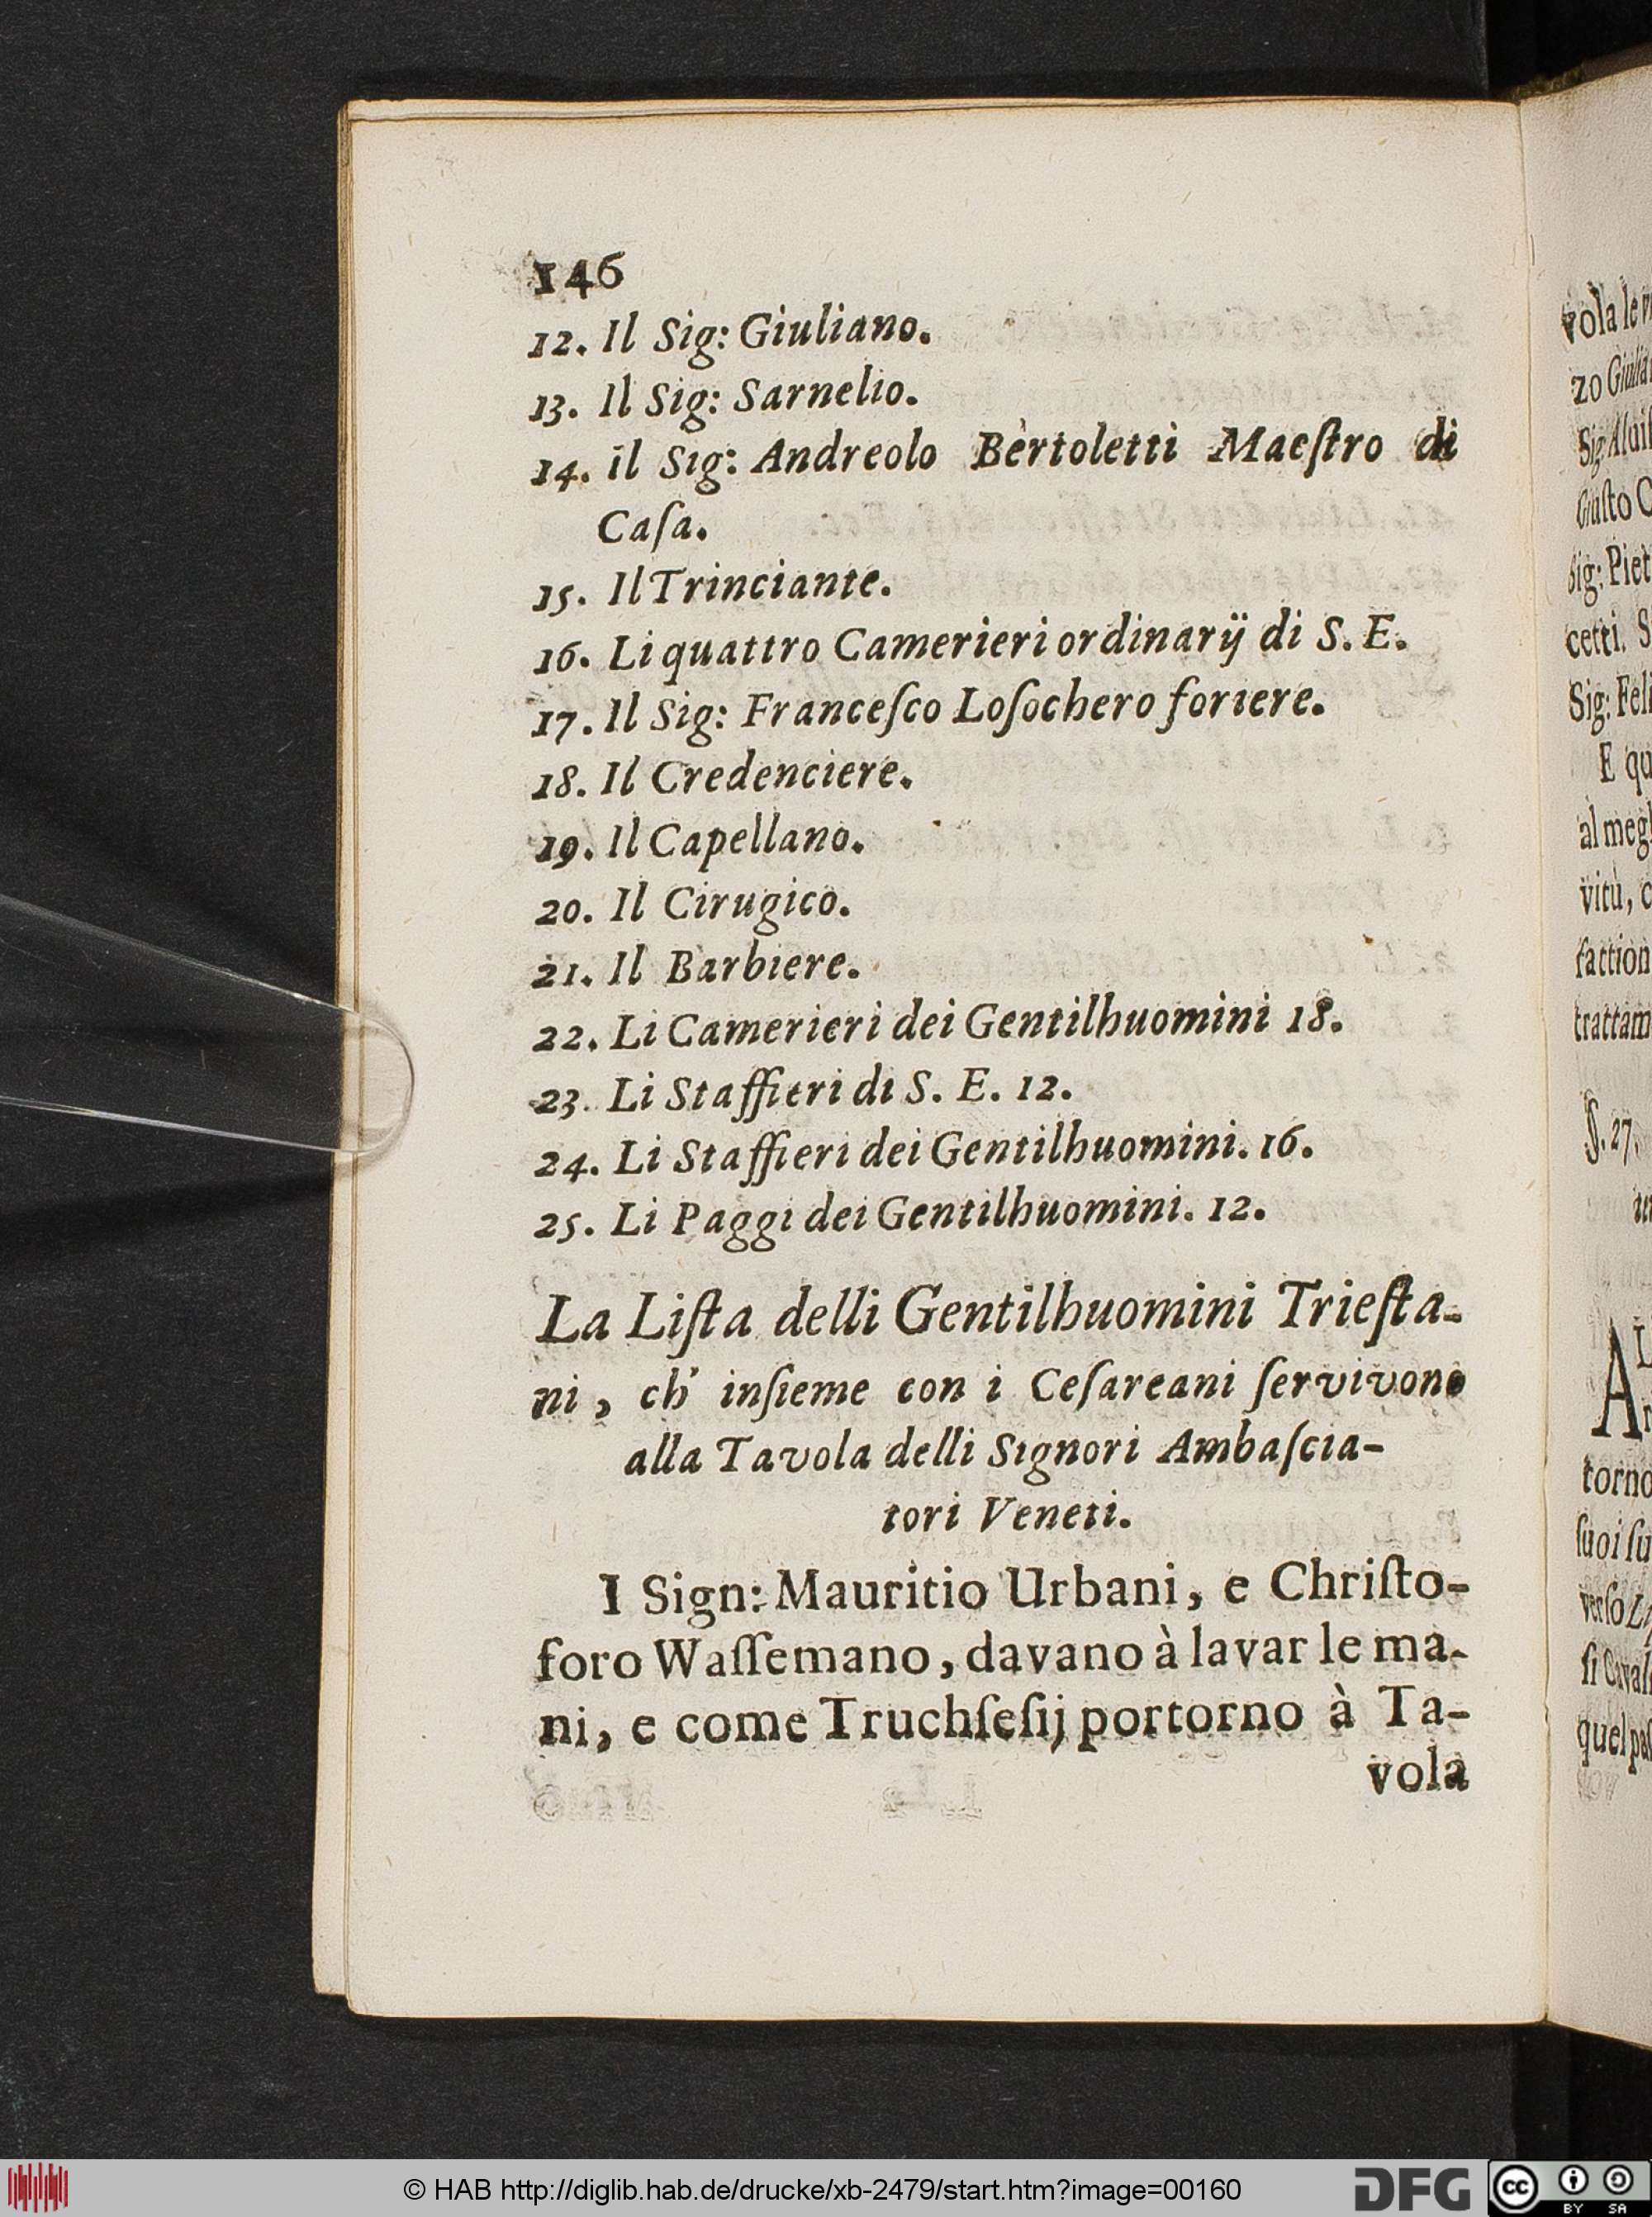 146
12. Il Sig: Giuliano.
13. Il Sig: Sarnelio.
14. il Sig: Andreolo Bèrtoletti Maeſtro di
Caſa.
15. Il Trinciante.
16. Li quattro Camerieri ordinarÿ di S. E.
17. Il Sig: Franceſco Loſochero foriere.
18. Il Credenciere.
19. Il Capellano.
20. Il Cirugico.
21. Il Barbiere.
22. Li Camerieri dei Gentilhuomini 18.
23. Li Staffieri di S. E. 12.
24. Li Staffieri dei Gentilhuomini. 16.
25. Li Paggi dei Gentilhuomini. 12.
La Liſta delli Gentilhuomini Trieſta-
ni, ch' inſieme con i Ceſareani ſervivono
alla Tavola delli Signori Ambaſcia-
tori Veneti.
I Sign: Mauritio Urbani, e Chriſto-
foro Waſſemano, davano à lavar le ma-
ni, e come Truchſeſij portorno à Ta-
vola
vola le
zo
Sig
Sig:
cetti. S
Sig:
E qu
al
vitù, c
§. 27.
torno
ſuoi
verſo
quel
© HAB http://diglib.hab.de/drucke/xb-2479/start.htm?image=00160
DFG
cc
BY SA